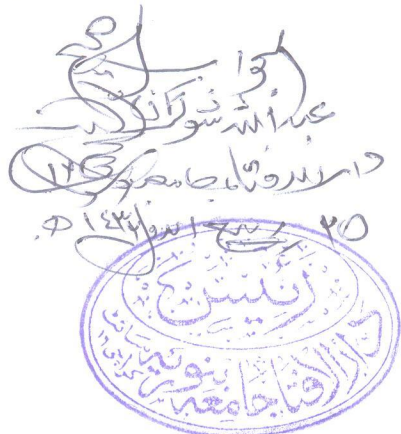 الجواب صحیح
عبداللہ شوکت
دارالافتاء جامعہ بنوریہ
۲۵ ربیع الاول ۱٤۳٤ ھ
رئیس
دارالافتاء جامعہ بنوریہ سائٹ کراچی ۱۶